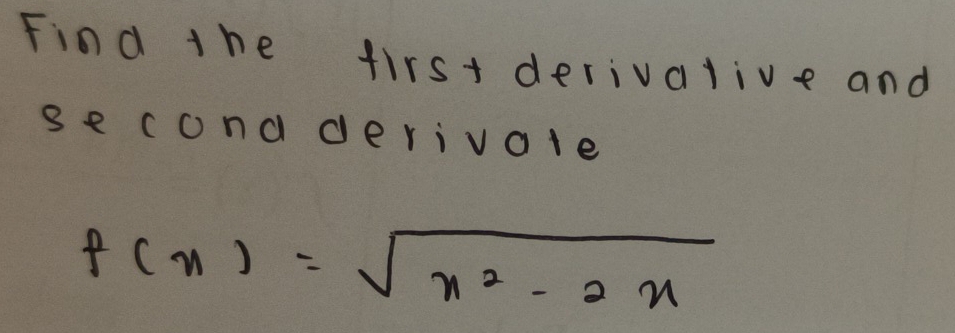 Find the first derivative and
second derivate
f(x) = √x² - 2x